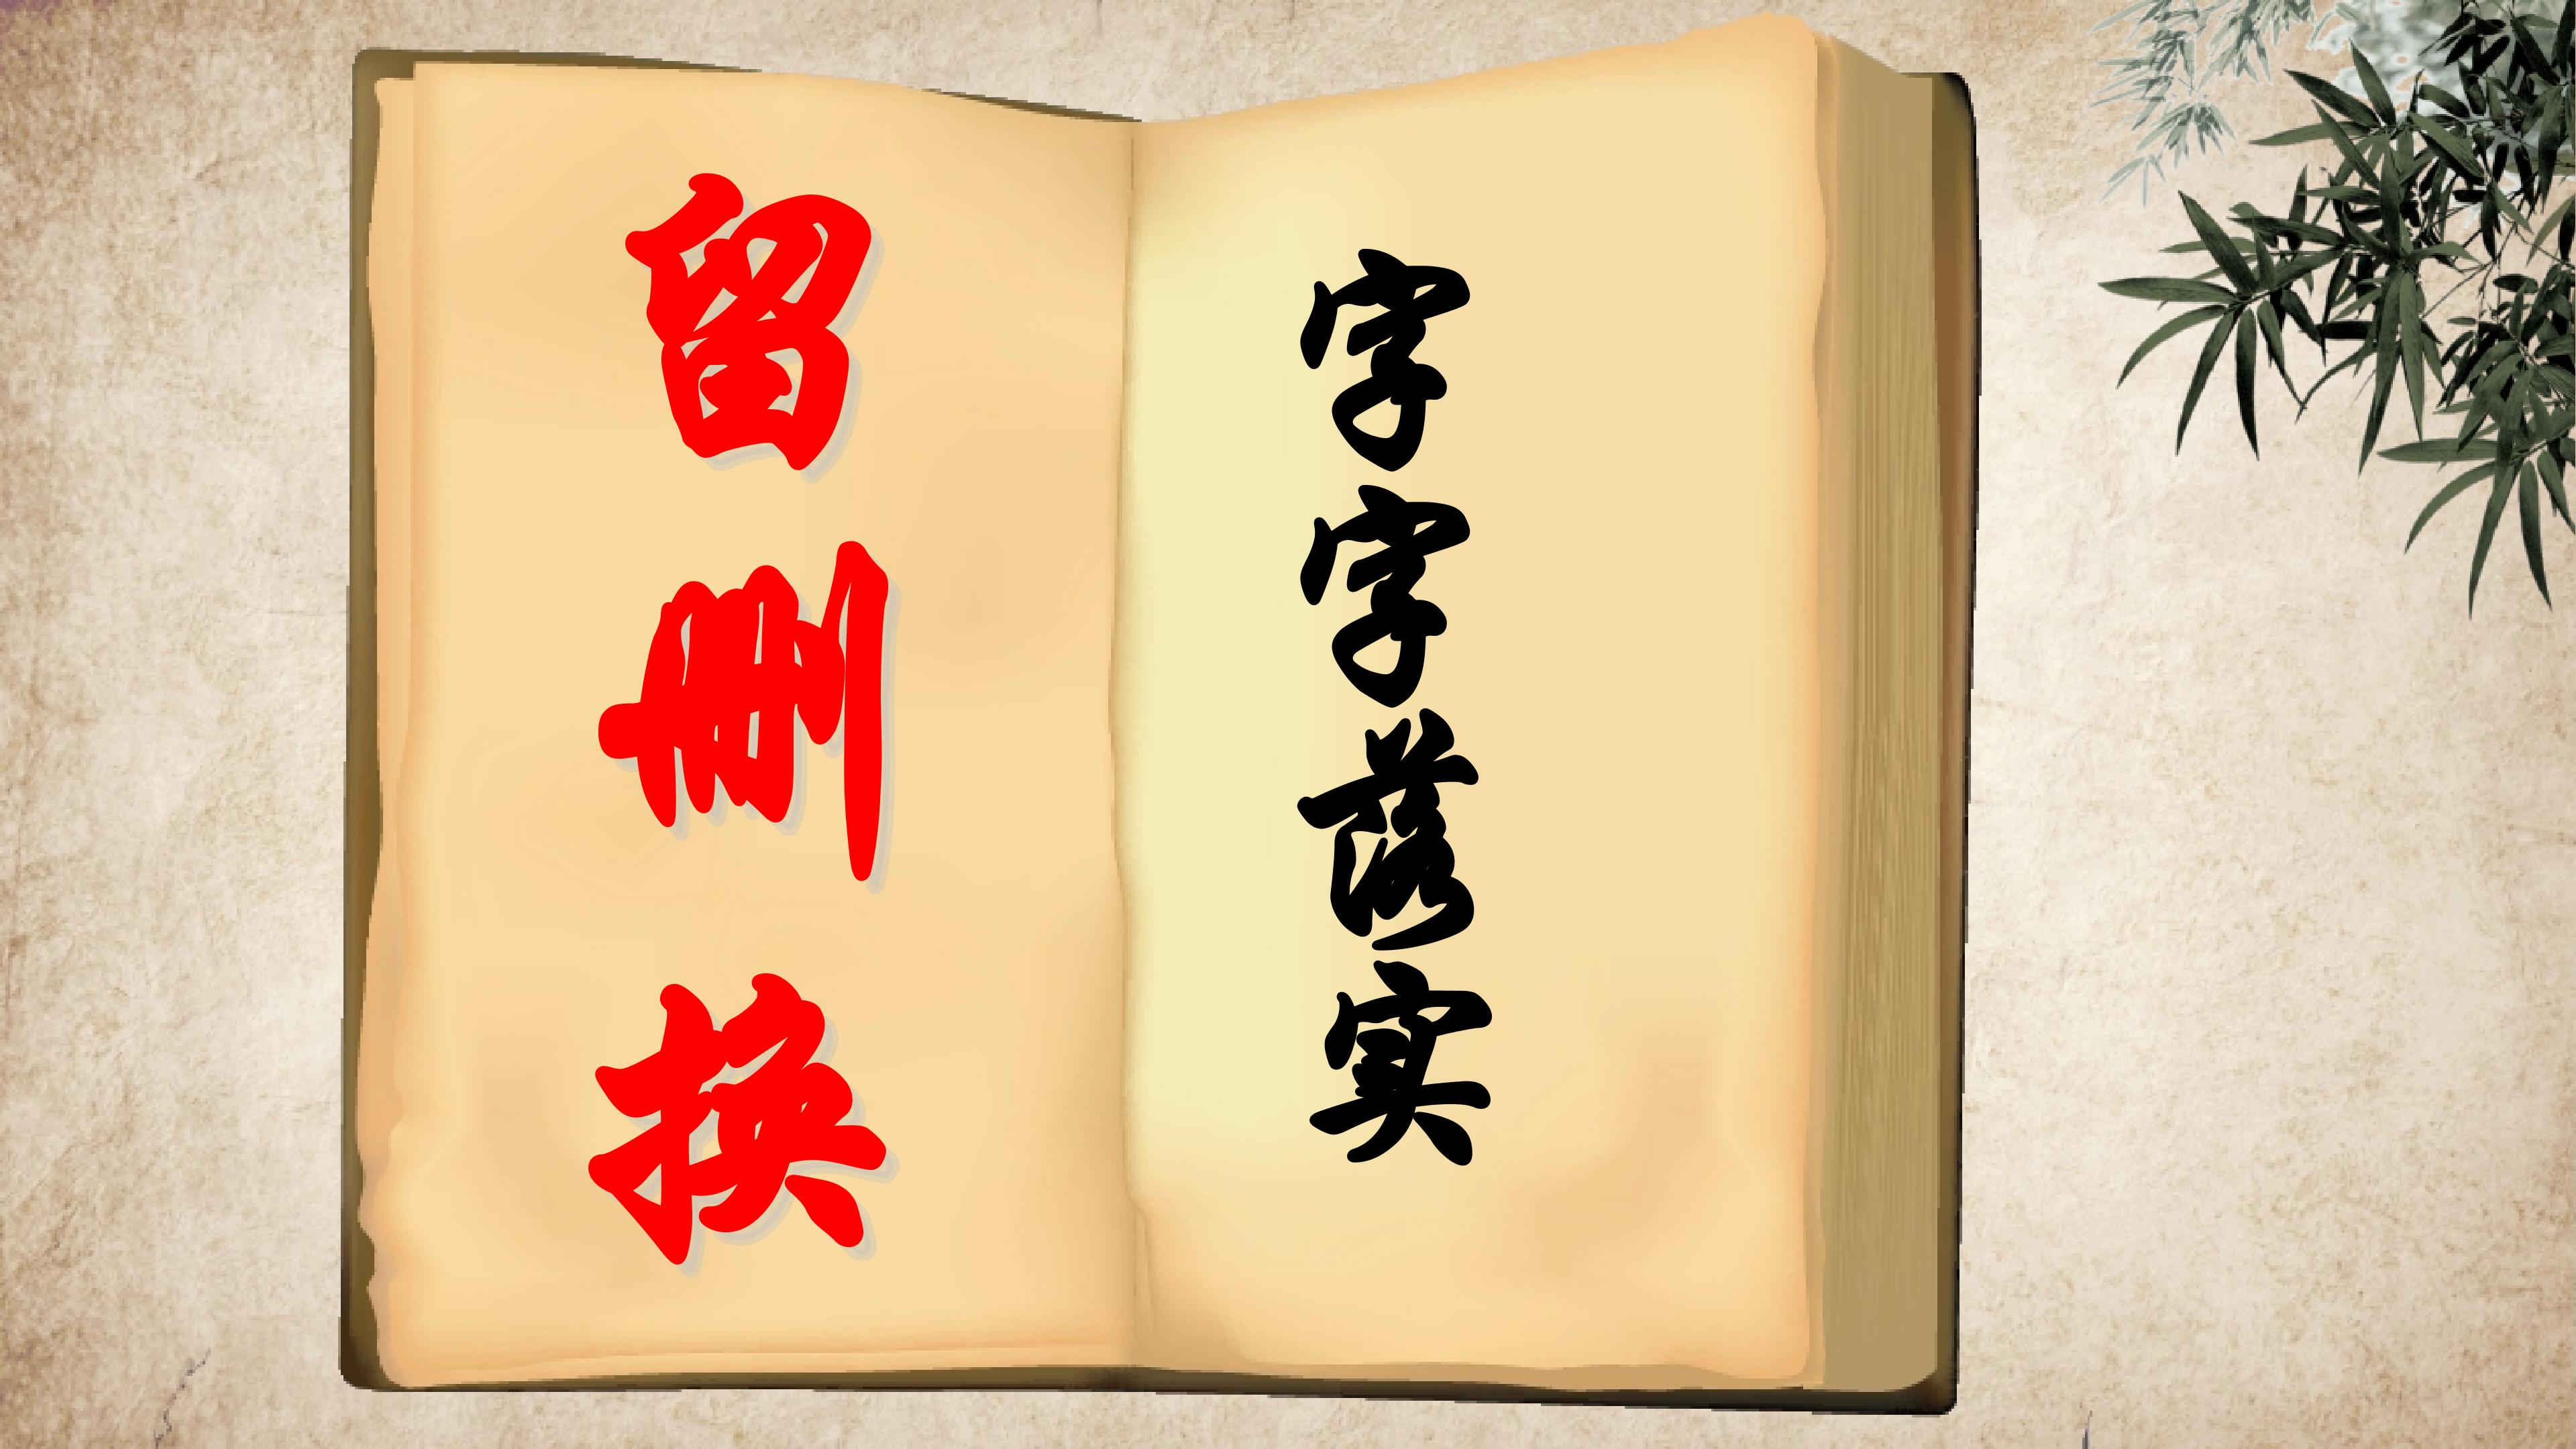 字字落实
留删换